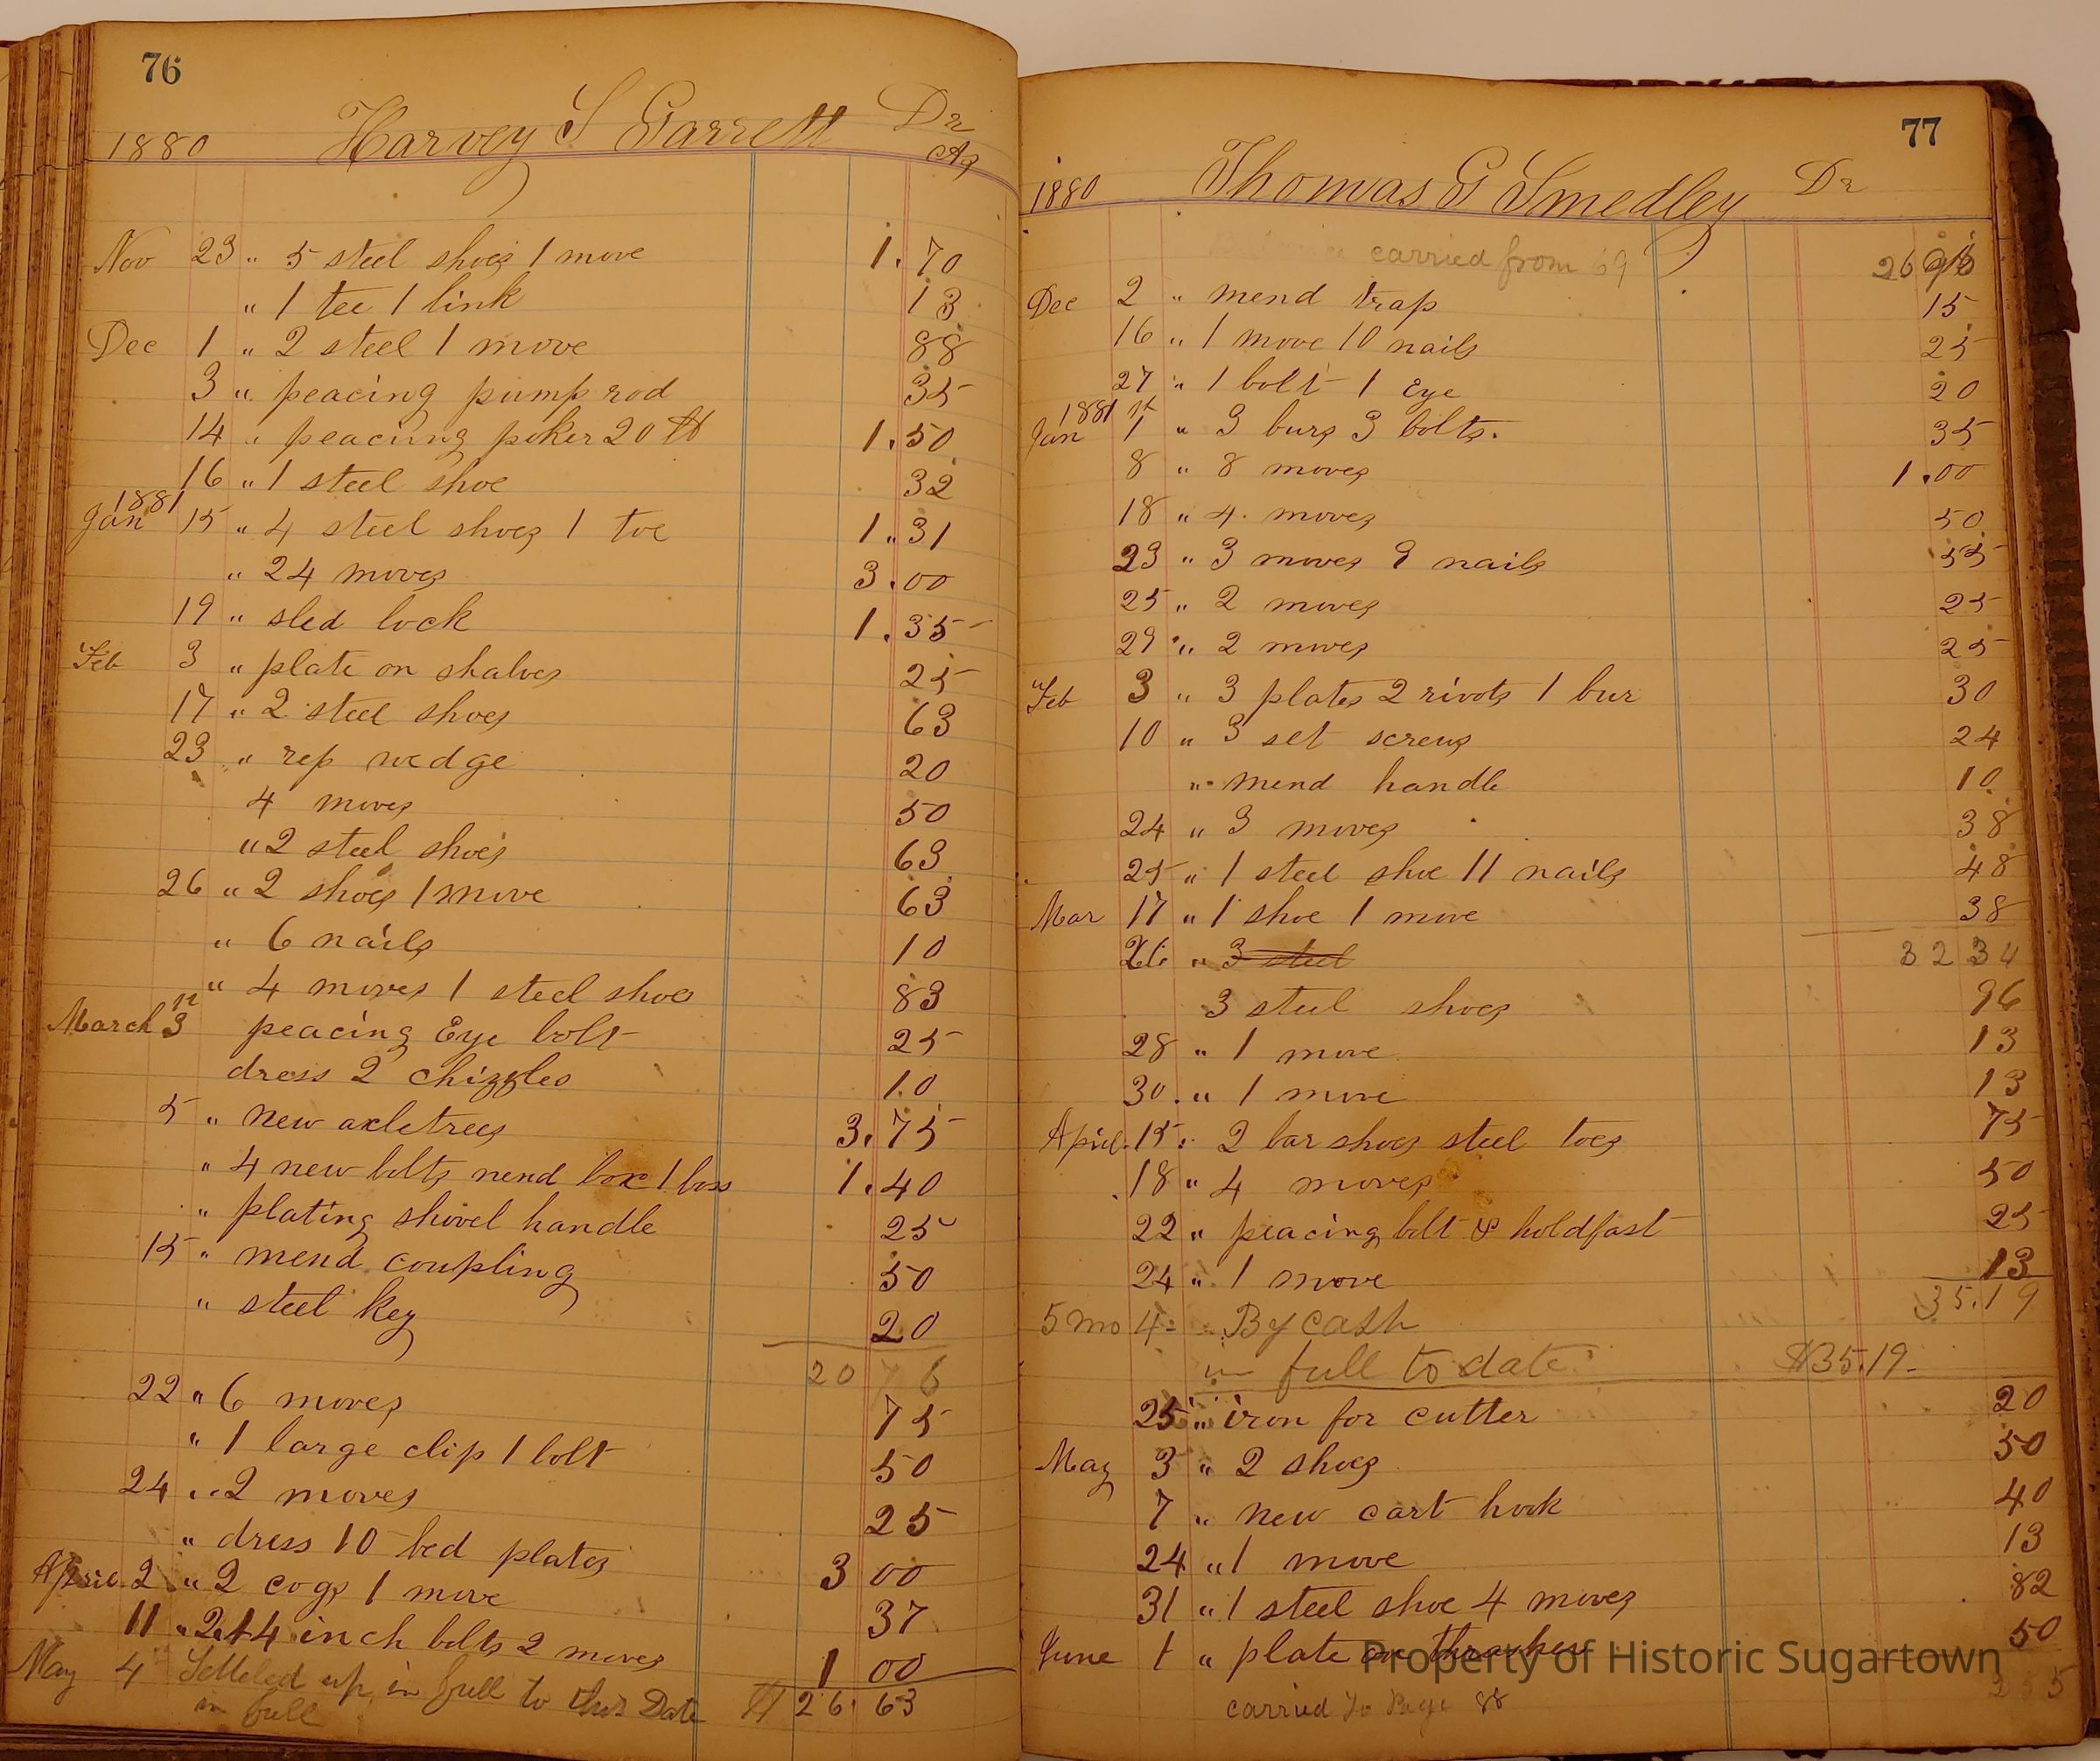 76
1880 Harvey S Garrett Dr
Nov 23 " 5 steel shoes 1 move 1.70
" 1 tee 1 link 13
Dec 1 " 2 steel 1 move 88
3 " peacing pump rod 35
14 " peacing poker 20 lb 1.50
16 " 1 steel shoe 32
1881
Jan 15 " 4 steel shoes 1 toe 1.31
" 24 moves 3.00
19 " sled lock 1.35
Feb 3 " plate on shalves 25
17 " 2 steel shoes 63
23 " rep wedge 20
4 moves 50
" 2 steel shoes 63
26 " 2 shoes 1 move 63
" 6 nails 10
" 4 moves 1 steel shoe 83
March 3 peacing Eye bolt 25
dress 2 chizzles 10
5 " new axletrees 3.75
" 4 new bolts mend box 1 boss 1.40
" plating shovel handle 25
15 " mend coupling 50
" steel key 20
20 76
22 " 6 moves 75
" 1 large clip 1 bolt 50
24 " 2 moves 25
" dress 10 bed plates 3 00
April 2 " 2 cogs 1 move 37
11 " 2 14 inch bolts 2 moves 1 00
May 4 Setteled up in full to this Date $ 26 63
in full
77
1880 Thomas G Smedley Dr
Balance carried from 69 26
Dec 2 " mend trap 15
16 " 1 move 10 nails 25
27 " 1 bolt 1 Eye 20
1881
Jan 1st " 3 burs 3 bolts. 35
8 " 8 moves 1.00
18 " 4 moves 50
23 " 3 moves 9 nails 55
25 " 2 moves 25
29 " 2 moves 25
Feb 3 " 3 plates 2 rivots 1 bur 30
10 " 3 set screws 24
" mend handle 10
24 " 3 moves 38
25 " 1 steel shoe 11 nails 48
Mar 17 " 1 shoe 1 move 38
26 " 3 steel 32 34
3 steel shoes 96
28 " 1 move 13
30 . " 1 move 13
April 15 " 2 bar shoes steel toes 75
18 " 4 moves 50
22 " peacing bolt & holdfast 25
24 " 1 move 13
35.19
5 mo 4 - By cash
in full to date $35.19
25 " iron for cutter 20
May 3 " 2 shoes 50
7 " new cart hook 40
24 " 1 move 13
31 " 1 steel shoe 4 moves 82
June 1 " plate on thrasher 50
2 55
carried to Page 88
Property of Historic Sugartown